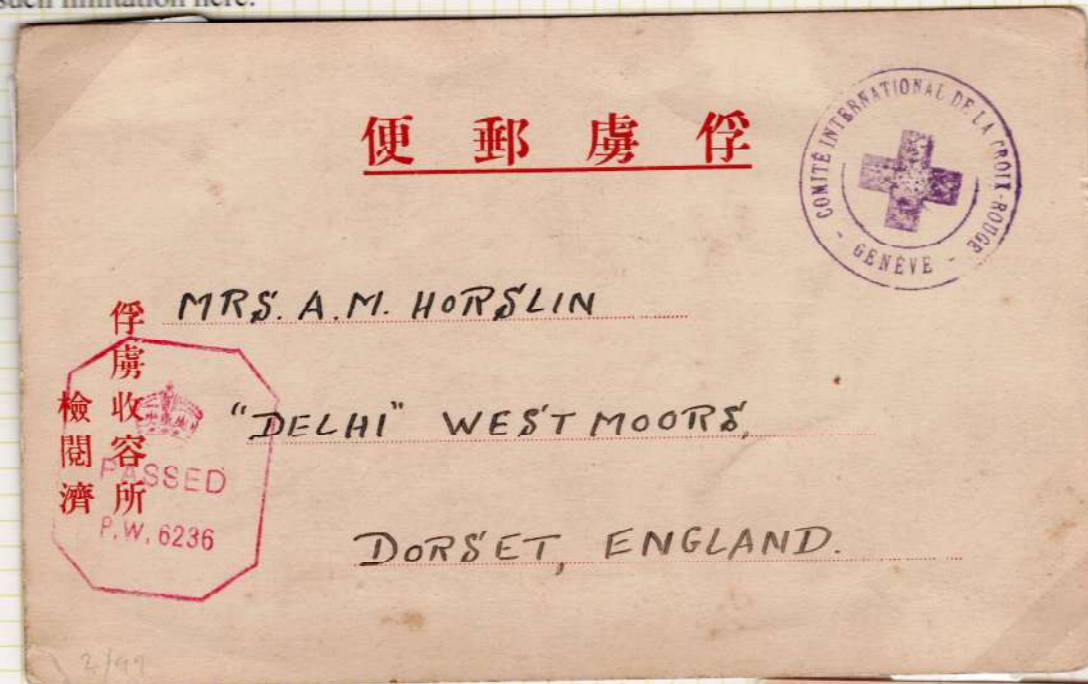 such limitation here.
便郵虜俘
COMITÉ INTERNATIONAL DE LA CROIX-ROUGE
- GENÈVE -
MRS. A.M. HORSLIN
"DELHI" WEST MOORS,
DORSET, ENGLAND.
俘虜收容所
檢閲濟
PASSED
P.W. 6236
2/99